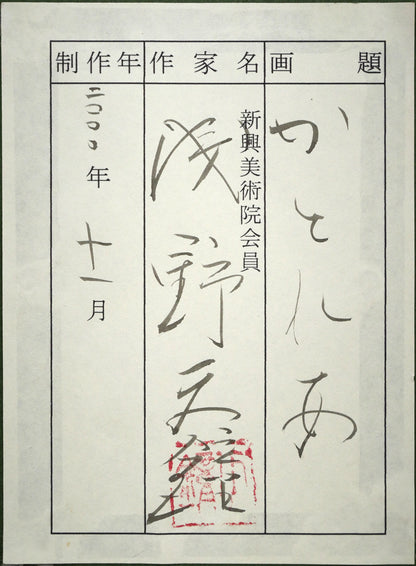 画題
かとれあ
作家名
新興美術院会員
浅野天鐘
制作年
二〇〇〇年十一月